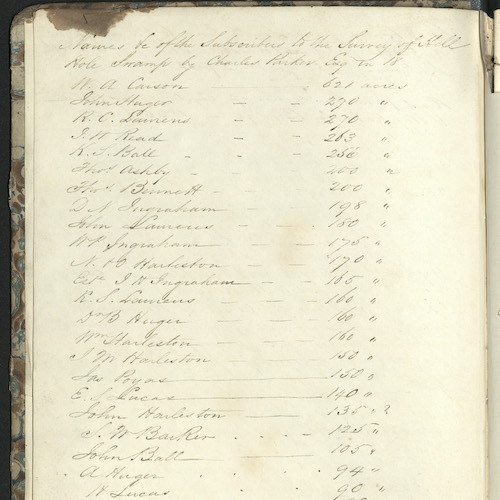 Names &c of the Subscribers to the Survey of Hell
Hole Swamp by Charles Parker Esq in 18
W. A. Carson 621 acres
John Huger — — 270 "
R. C. Laurens — — 270 "
J. H. Read — — 263 "
K. S. Ball - - 250 "
Thos. Ashby - — — 200 "
Thos. Bennett — — 200 "
D N Ingraham 198 "
John Laurens — — 180 "
W P. Ingraham — — 175 "
N. Harleston — — 170 "
Est. J H Ingraham — — 165 "
K. S. Laurens — — 160 "
Dr B Huger — — 160 "
Wm Harleston — — 160 "
J Harleston 150 "
Jas Poyas 150 "
E. S Lucas 140 "
John Harleston 135 "?
S. W Barker - - - 125 "
John Ball 105 "
A Huger - - - 94 "
H Lucas 90 "